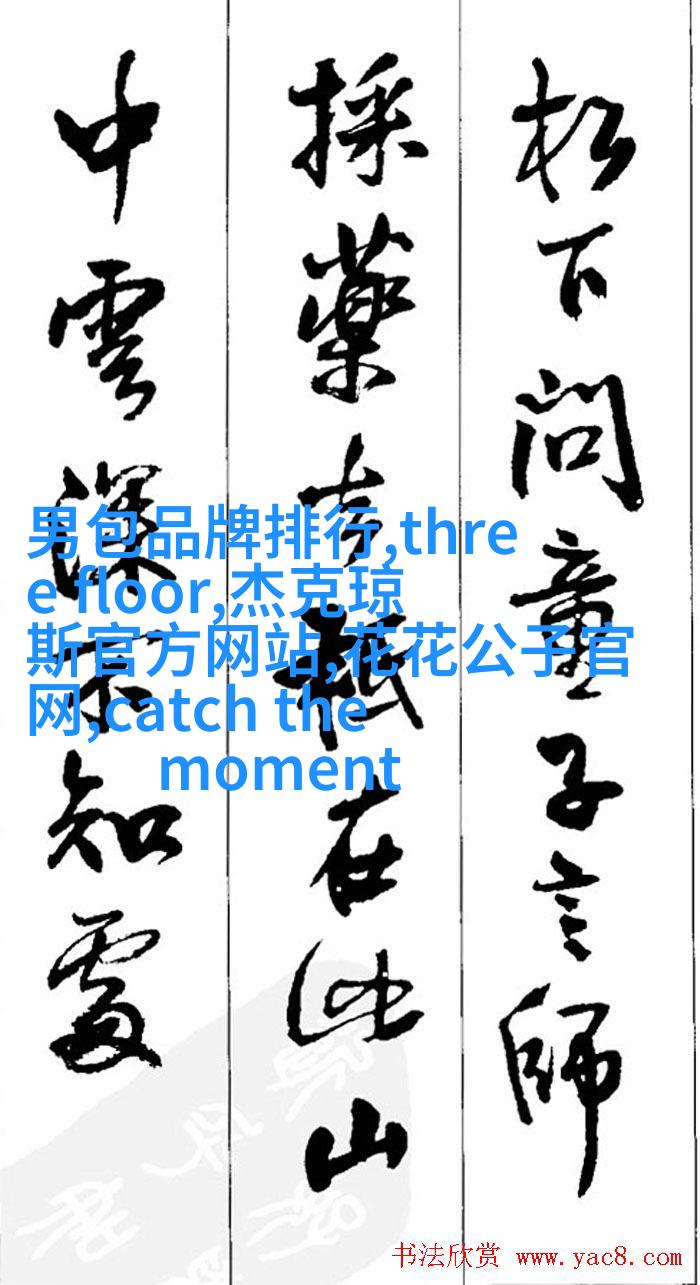 松下问童子言師
採藥去秖在此山
中雲深不知處
男包品牌排行,thre
e floor,杰克琼
斯官方网站,花花公子官
网,catch the
moment
书法欣赏 www.yac8.com